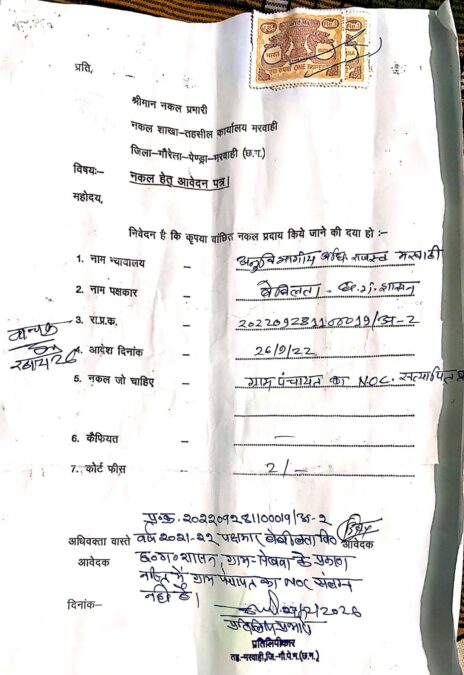 प्रति,
श्रीमान नकल प्रभारी
नकल शाखा–तहसील कार्यालय मरवाही
जिला–गौरेला–पेण्ड्रा–मरवाही (छ.ग.)
विषयः– नकल हेतु आवेदन पत्र।
महोदय,
निवेदन है कि कृपया वांछित नकल प्रदाय किये जाने की दया हो :–
1. नाम न्यायालय – अनुविभागीय अधि. राजस्व मरवाही
2. नाम पक्षकार – बेबीलता छ.ग. शासन
3. रा.प्र.क. – 202209281100019/अ-2
4. आदेश दिनांक – 26/9/22
5. नकल जो चाहिए – ग्राम पंचायत का NOC. सत्यापित
6. कैफियत – —
7. कोर्ट फीस – 2/-
प्र.क्र. 202209281100019/अ-2
अधिवक्ता वास्ते वर्ष 2021-22 पक्षकार बेबीलता आवेदक
आवेदक छ.ग. शासन, ग्राम के प्रकरण
नस्ती में ग्राम पंचायत का NOC संलग्न
नहीं है।
दिनांक–
प्रतिलिपिकार
तह.-मरवाही, जि.-गौ.पे.म.(छ.ग.)